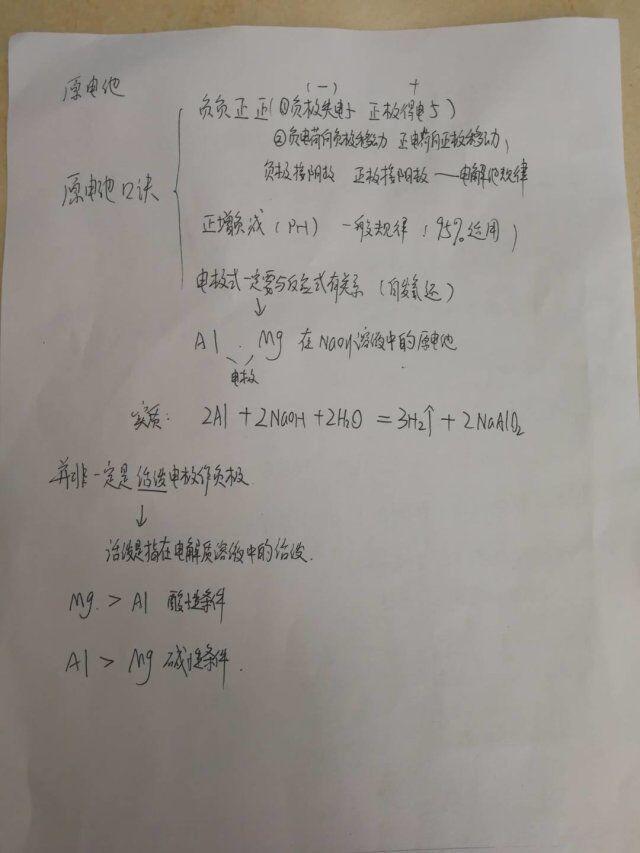 原电池
(一) +
负负正正(①负极失电子 正极得电子)
②负电荷向负极移动 正电荷向正极移动,
原电池口诀
负极接阴极 正极接阳极 — 电解池规律
正增负减(PH) 一般规律(95%适用)
电极式一定要与反应式有关系(自发氧还)
↓
Al . Mg 在NaOH溶液中的原电池
电极
实质: 2Al + 2NaOH + 2H₂O = 3H₂↑ + 2NaAlO₂
并非一定是活泼电极作负极.
↓
活泼是指在电解质溶液中的活泼.
Mg. > Al 酸性条件
Al > Mg 碱性条件.